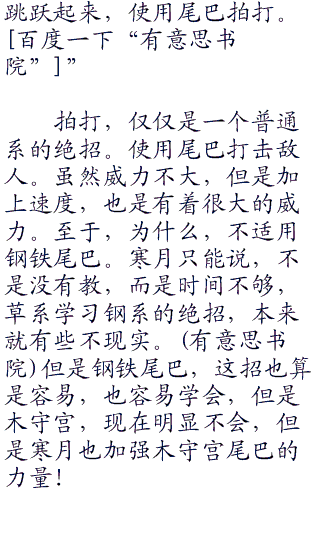 跳跃起来，使用尾巴拍打。
[百度一下“有意思书
院”]”
拍打，仅仅是一个普通
系的绝招。使用尾巴打击敌
人。虽然威力不大，但是加
上速度，也是有着很大的威
力。至于，为什么，不适用
钢铁尾巴。寒月只能说，不
是没有教，而是时间不够，
草系学习钢系的绝招，本来
就有些不现实。(有意思书
院)但是钢铁尾巴，这招也算
是容易，也容易学会，但是
木守宫，现在明显不会，但
是寒月也加强木守宫尾巴的
力量！